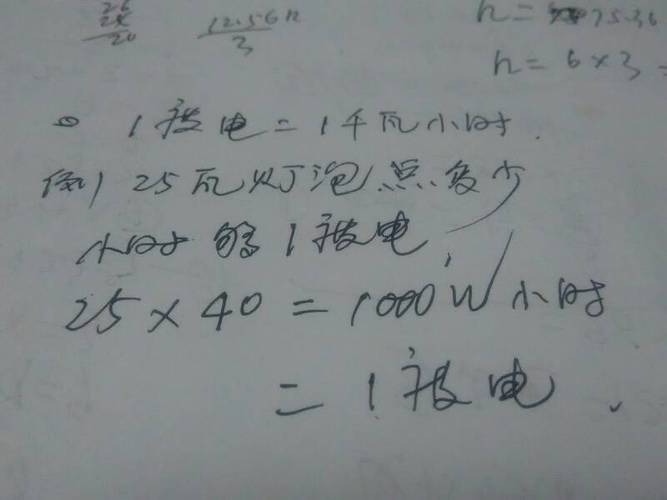 12.56h
3
h = 75.36
h = 6×3
1 被电 = 1 千瓦小时.
例) 25瓦灯泡点多少
小时够1被电
25 × 40 = 1000W小时
= 1被电.